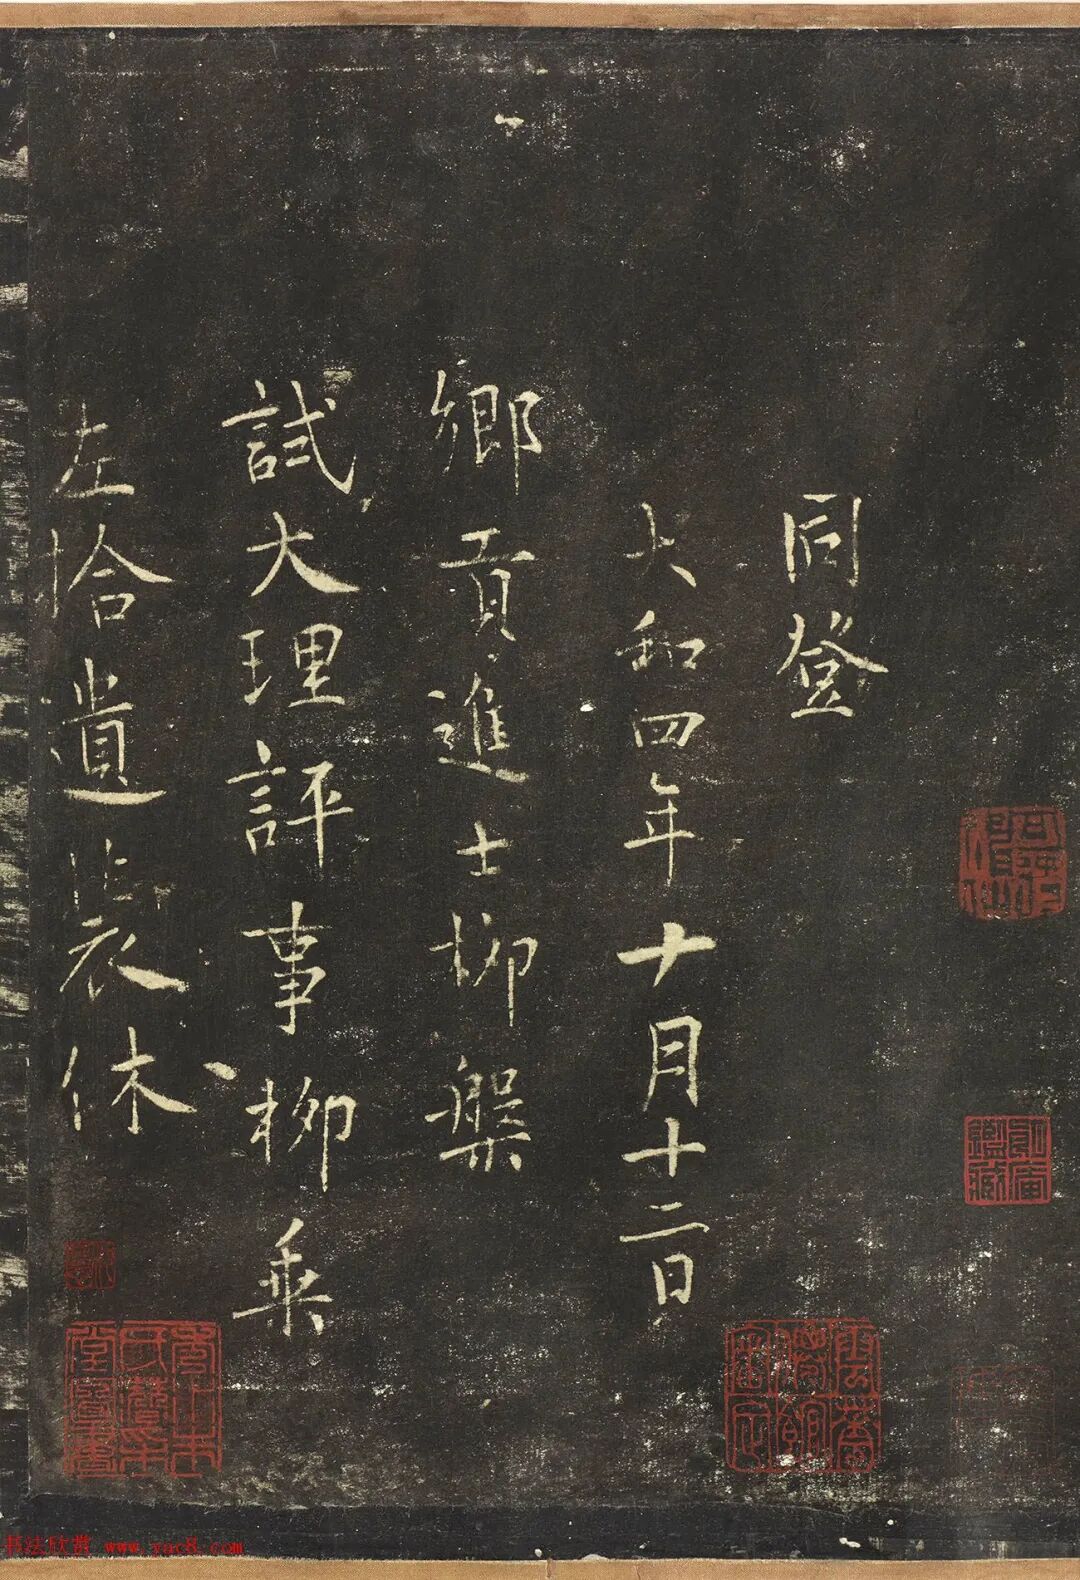 同登
大和四年十月十二日
鄉貢進士柳槃
試大理評事柳乘
左拾遺裴休
書法欣赏 www.yac8.com